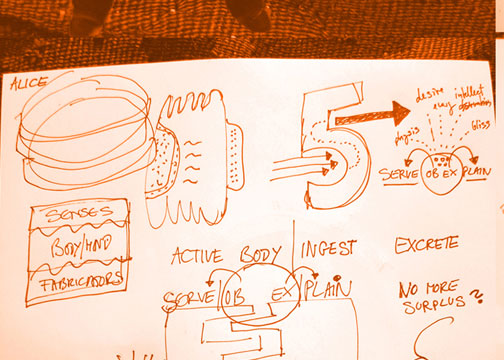 ALICE
5
desire
intellect
physis
bliss
SERVE OB EX PLAIN
SENSES
BODY/MIND
FABRICATORS
ACTIVE BODY INGEST EXCRETE
SERVE/OB EX PLAIN
NO MORE
SURPLUS?